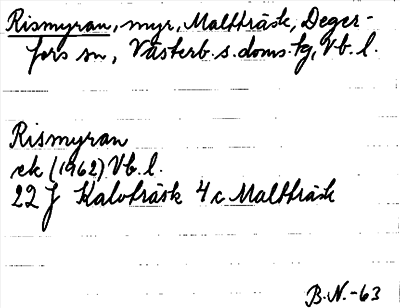 Rismyran, myr, Maltträsk, Deger-
fors sn, Västerb. s. doms. tg, Vb. l.
Rismyran
ek (1962) Vb. l.
22 J Kalvträsk 4 c Maltträsk
B.N.-63